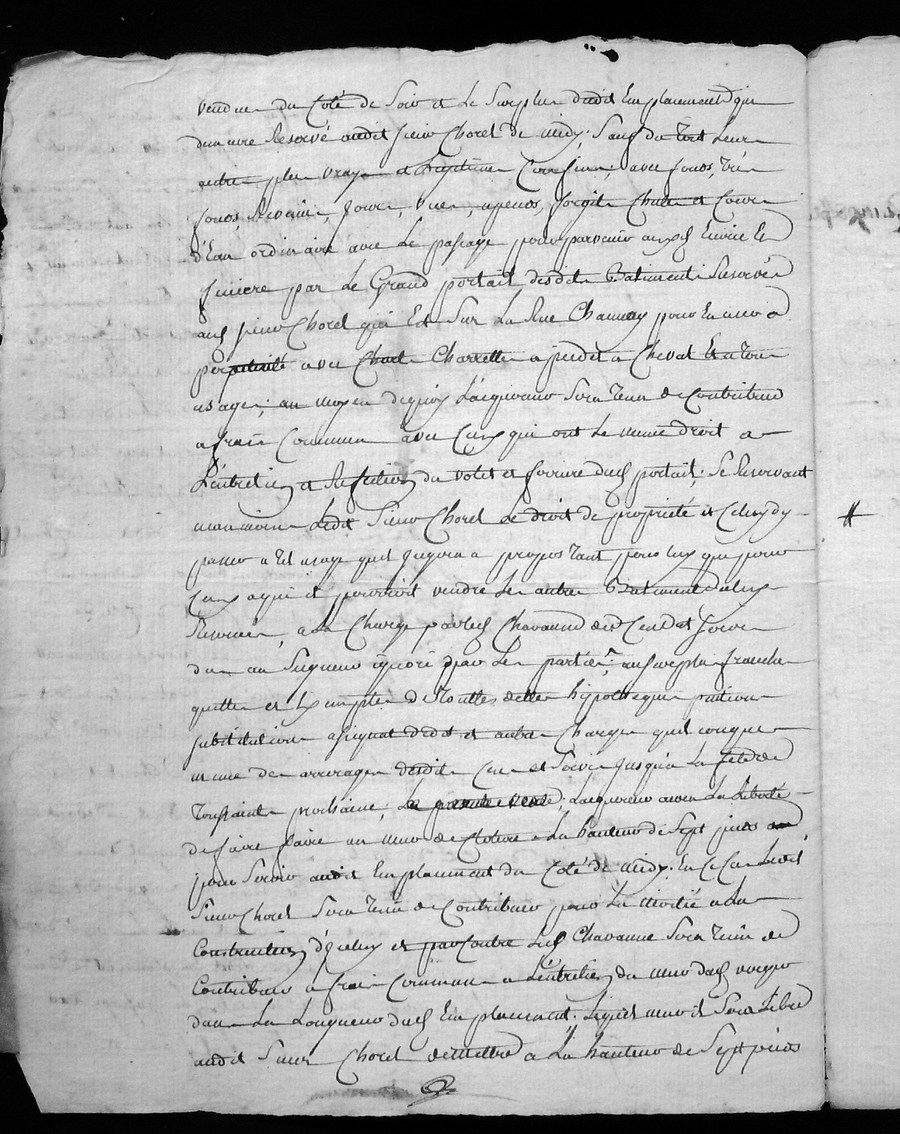 vendue du Coté de Soir et le Surplus dudit Emplacement qui
demeure Reservé audit sieur Chorel de midy; Sauf du tout leurs
autres plus vrays et legitimes Confins; avec fonds, très
fonds, Servitudes, jours, vues, apends, Chutes et Cours
d'Eau ordinaires avec le passage pour parvenir auxd Ecurie Et
feniere par le Grand portail desdits Batiments Reservés
aud sieur Chorel qui Est Sur la Rue Chaunay pour En user a
perpetuité avec Charrettes a pied et a Cheval Et a tous
usages; au moyen de quoy l'acquereur Sera tenu de Contribuer
a frais Communs avec Ceux qui ont le meme droit a
L'entretien et Refection du volet et ferrure dud portail; Se Reservant
neanmoins ledit Sieur Chorel le droit de proprieté et Celuy d'y
passer a tel usage quil jugera a propos tant pour luy que pour
Ceux a qui il pourroit vendre les autres Batiments
Reservés, a la Charge par led Chavanne des Cens et Servis
dus au Seigneur ignoré par les parties, au Surplus franche
quitte et Exempte de toutes dettes hypotheques pentions
substitutions et autres Charges quelconques
meme des arrerages desdits Cens et Servis jusqu'a la fete de
Toussaint prochaine; L'acquereur aura la liberté
de faire faire un mur de Cloture a la hauteur de Sept pieds
pour Servir audit Emplacement du Coté de midy; En ce Cas Ledit
Sieur Chorel Sera tenu de Contribuer pour la moitié a la
Construction d'iceluy et par Contre led Chavanne Sera tenu de
Contribuer a frais Communs a L'entretien du mur dud verger
dans La Longueur dud Emplacement. Lequel mur il Sera libre
audit Sieur Chorel de mettre a La hauteur de Sept pieds
#